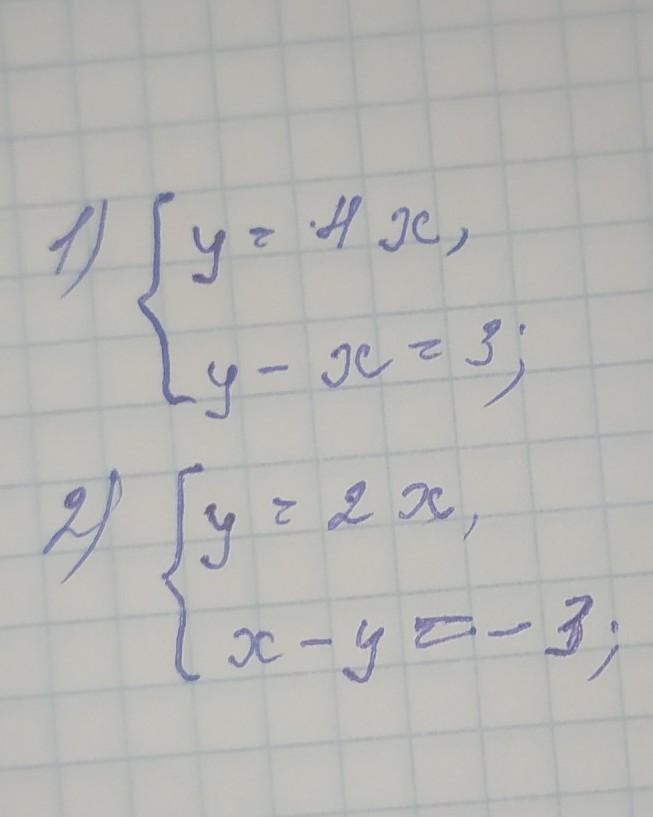 1) { y = 4x,
y - x = 3;
2) { y = 2x,
x - y = -3;